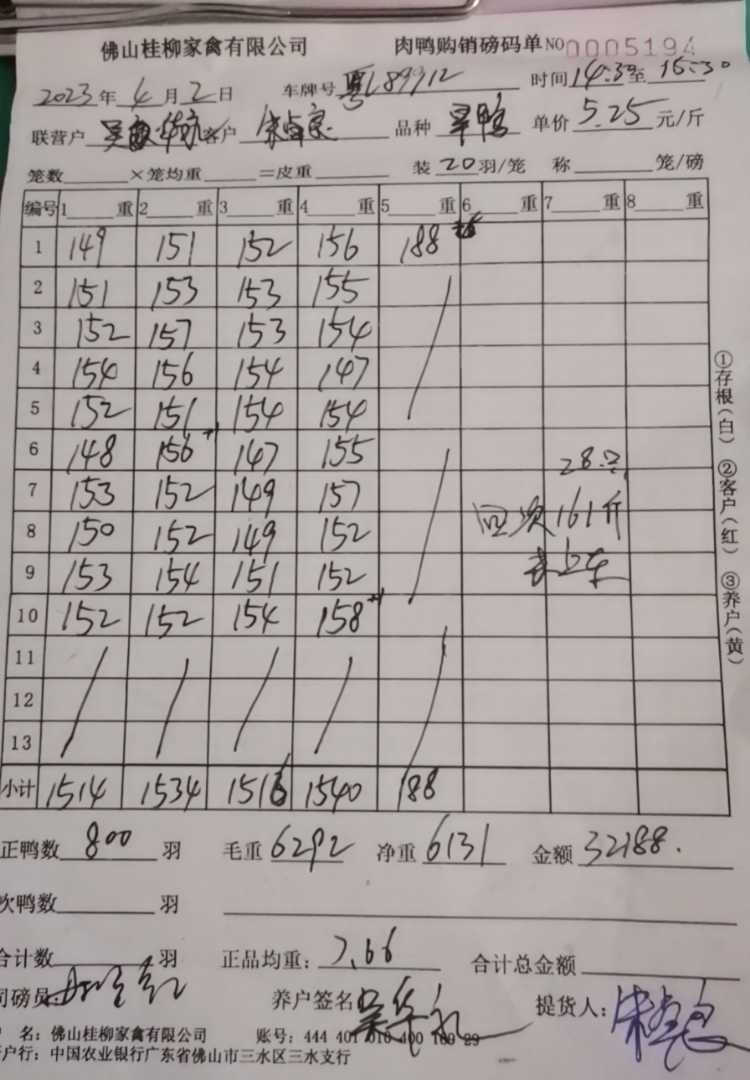 佛山桂柳家禽有限公司 肉鸭购销磅码单 NO 0005194
2023年 4月 2日 车牌号 粤L89912 时间 14:30至 15:30
联营户 客户 品种 单价 5.25 元/斤
笼数 ×笼均重 =皮重 装 20 羽/笼 称 笼/磅
编号 1 重 2 重 3 重 4 重 5 重 6 重 7 重 8 重
1 149 151 152 156 188
2 151 153 153 155
3 152 157 153 154
4 154 156 154 147
5 152 151 154 154
6 148 156+1 147 155
7 153 152 149 157
8 150 152 149 152
9 153 154 151 152
10 152 152 154 158+1
11
12
13
28只
回须161斤
未上车
小计 1514 1534 1516 1540 188
正鸭数 800 羽 毛重 6292 净重 6131 金额 32188.
次鸭数 羽
合计数 羽 正品均重: 7.66 合计总金额
司磅员: 养户签名 提货人:
户 名: 佛山桂柳家禽有限公司 账号: 444 401 010 400 169 29
开户行: 中国农业银行广东省佛山市三水区三水支行
①存根(白) ②客户(红) ③养户(黄)